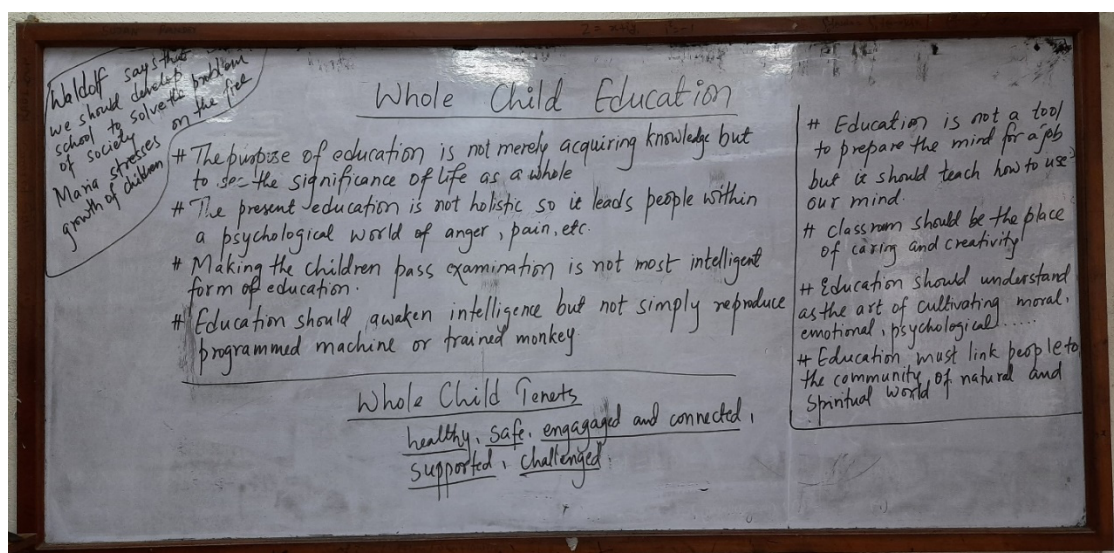 Waldolf says that
we should develop
school to solve the problem
of society
Maria stresses on the free
growth of children
Whole Child Education
# The purpose of education is not merely acquiring knowledge but
to see the significance of life as a whole
# The present education is not holistic so it leads people within
a psychological world of anger, pain, etc.
# Making the children pass examination is not most intelligent
form of education.
# Education should awaken intelligence but not simply reproduce
programmed machine or trained monkey
Whole Child Tenets
healthy, safe, engagaged and connected,
supported, challenged
# Education is not a tool
to prepare the mind for a job
but it should teach how to use
our mind.
# classroom should be the place
of caring and creativity
# Education should understand
as the art of cultivating moral,
emotional, psychological.....
# Education must link people to
the community, of natural and
Spiritual world